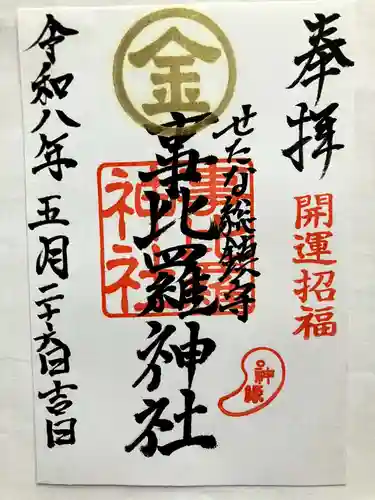 奉拝
開運招福
せたな総鎮守
金
事比羅神社
事比羅
神社
令和八年五月二十六日吉日